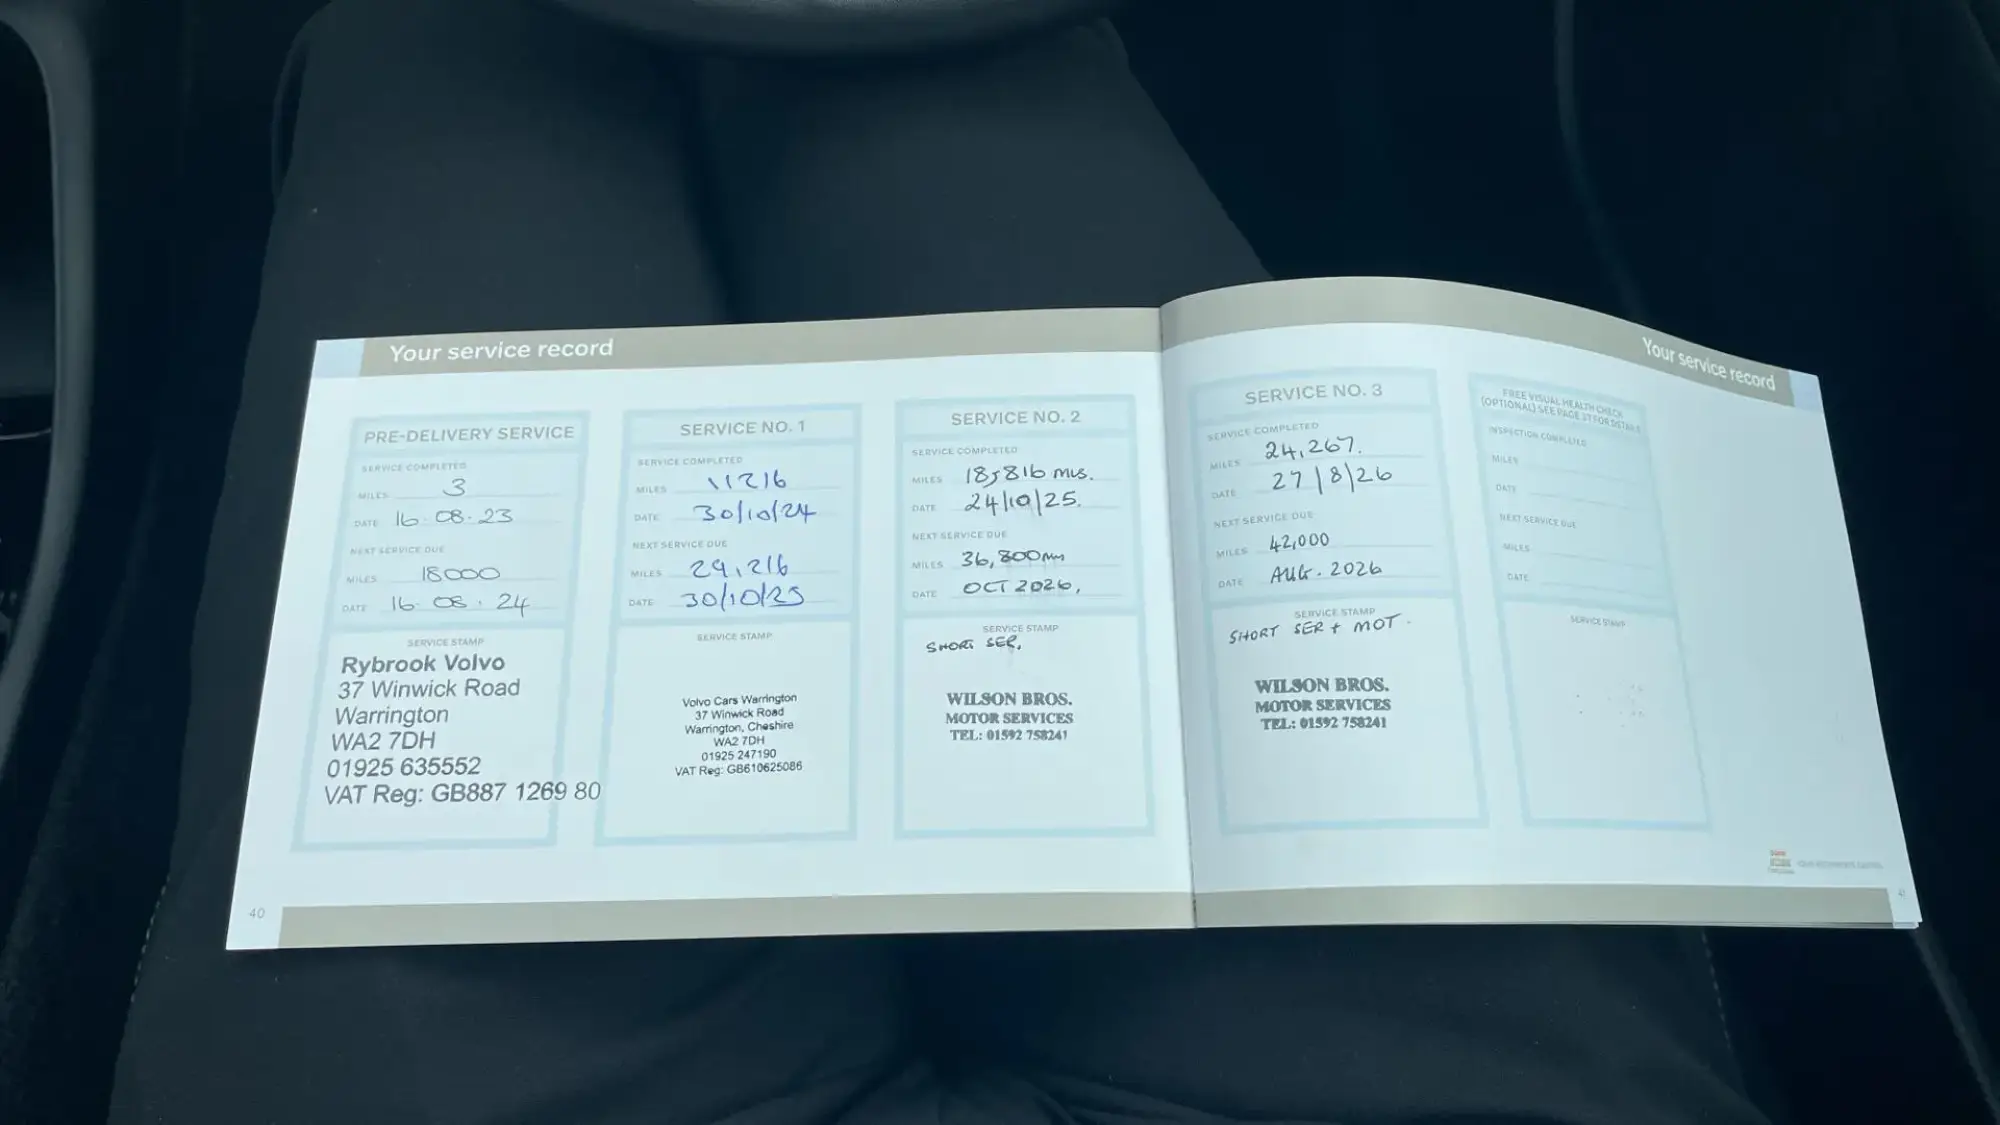 Your service record
PRE-DELIVERY SERVICE
SERVICE COMPLETED
MILES 3
DATE 16-08-23
NEXT SERVICE DUE
MILES 18000
DATE 16-08-24
SERVICE STAMP
Rybrook Volvo
37 Winwick Road
Warrington
WA2 7DH
01925 635552
VAT Reg: GB887 1269 80
SERVICE NO. 1
SERVICE COMPLETED
MILES 11216
DATE 30/10/24
NEXT SERVICE DUE
MILES 29,216
DATE 30/10/25
SERVICE STAMP
Volvo Cars Warrington
37 Winwick Road
Warrington, Cheshire
WA2 7DH
01925 247190
VAT Reg: GB610625086
SERVICE NO. 2
SERVICE COMPLETED
MILES 18,816 mls.
DATE 24/10/25.
NEXT SERVICE DUE
MILES 36,800
DATE OCT 2026,
SERVICE STAMP
SHORT SER.
WILSON BROS.
MOTOR SERVICES
TEL: 01592 758241
40
Your service record
SERVICE NO. 3
SERVICE COMPLETED
MILES 24,267.
DATE 27/8/26
NEXT SERVICE DUE
MILES 42,000
DATE AUG. 2026
SERVICE STAMP
SHORT SER + MOT.
WILSON BROS.
MOTOR SERVICES
TEL: 01592 758241
FREE VISUAL HEALTH CHECK
(OPTIONAL) SEE PAGE 37 FOR DETAILS
INSPECTION COMPLETED
MILES
DATE
NEXT SERVICE DUE
MILES
DATE
SERVICE STAMP
41